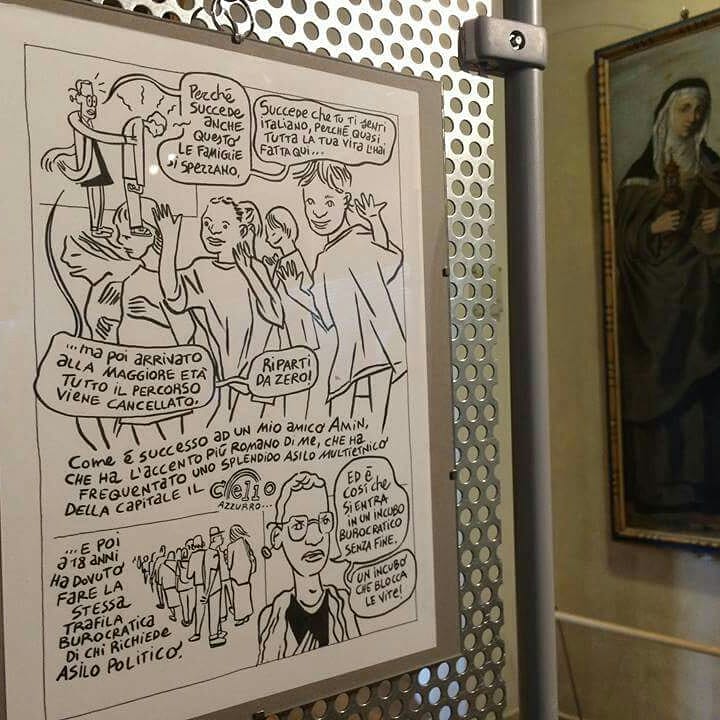 Perché
succede
anche
questo
le famiglie
si spezzano.
Succede che tu ti senti
italiano, perché quasi
tutta la tua vita l'hai
fatta qui...
...ma poi arrivato
alla maggiore età
tutto il percorso
viene cancellato.
Riparti
da zero!
Come è successo ad un mio amico Amin,
che ha l'accento più romano di me, che ha
frequentato uno splendido asilo multietnico
della capitale il Celio
azzurro...
...e poi
a 18 anni
ha dovuto
fare la
stessa
trafila
burocratica
di chi richiede
asilo politico.
Ed è
così che
si entra
in un incubo
burocratico
senza fine.
Un incubo
che blocca
le vite!